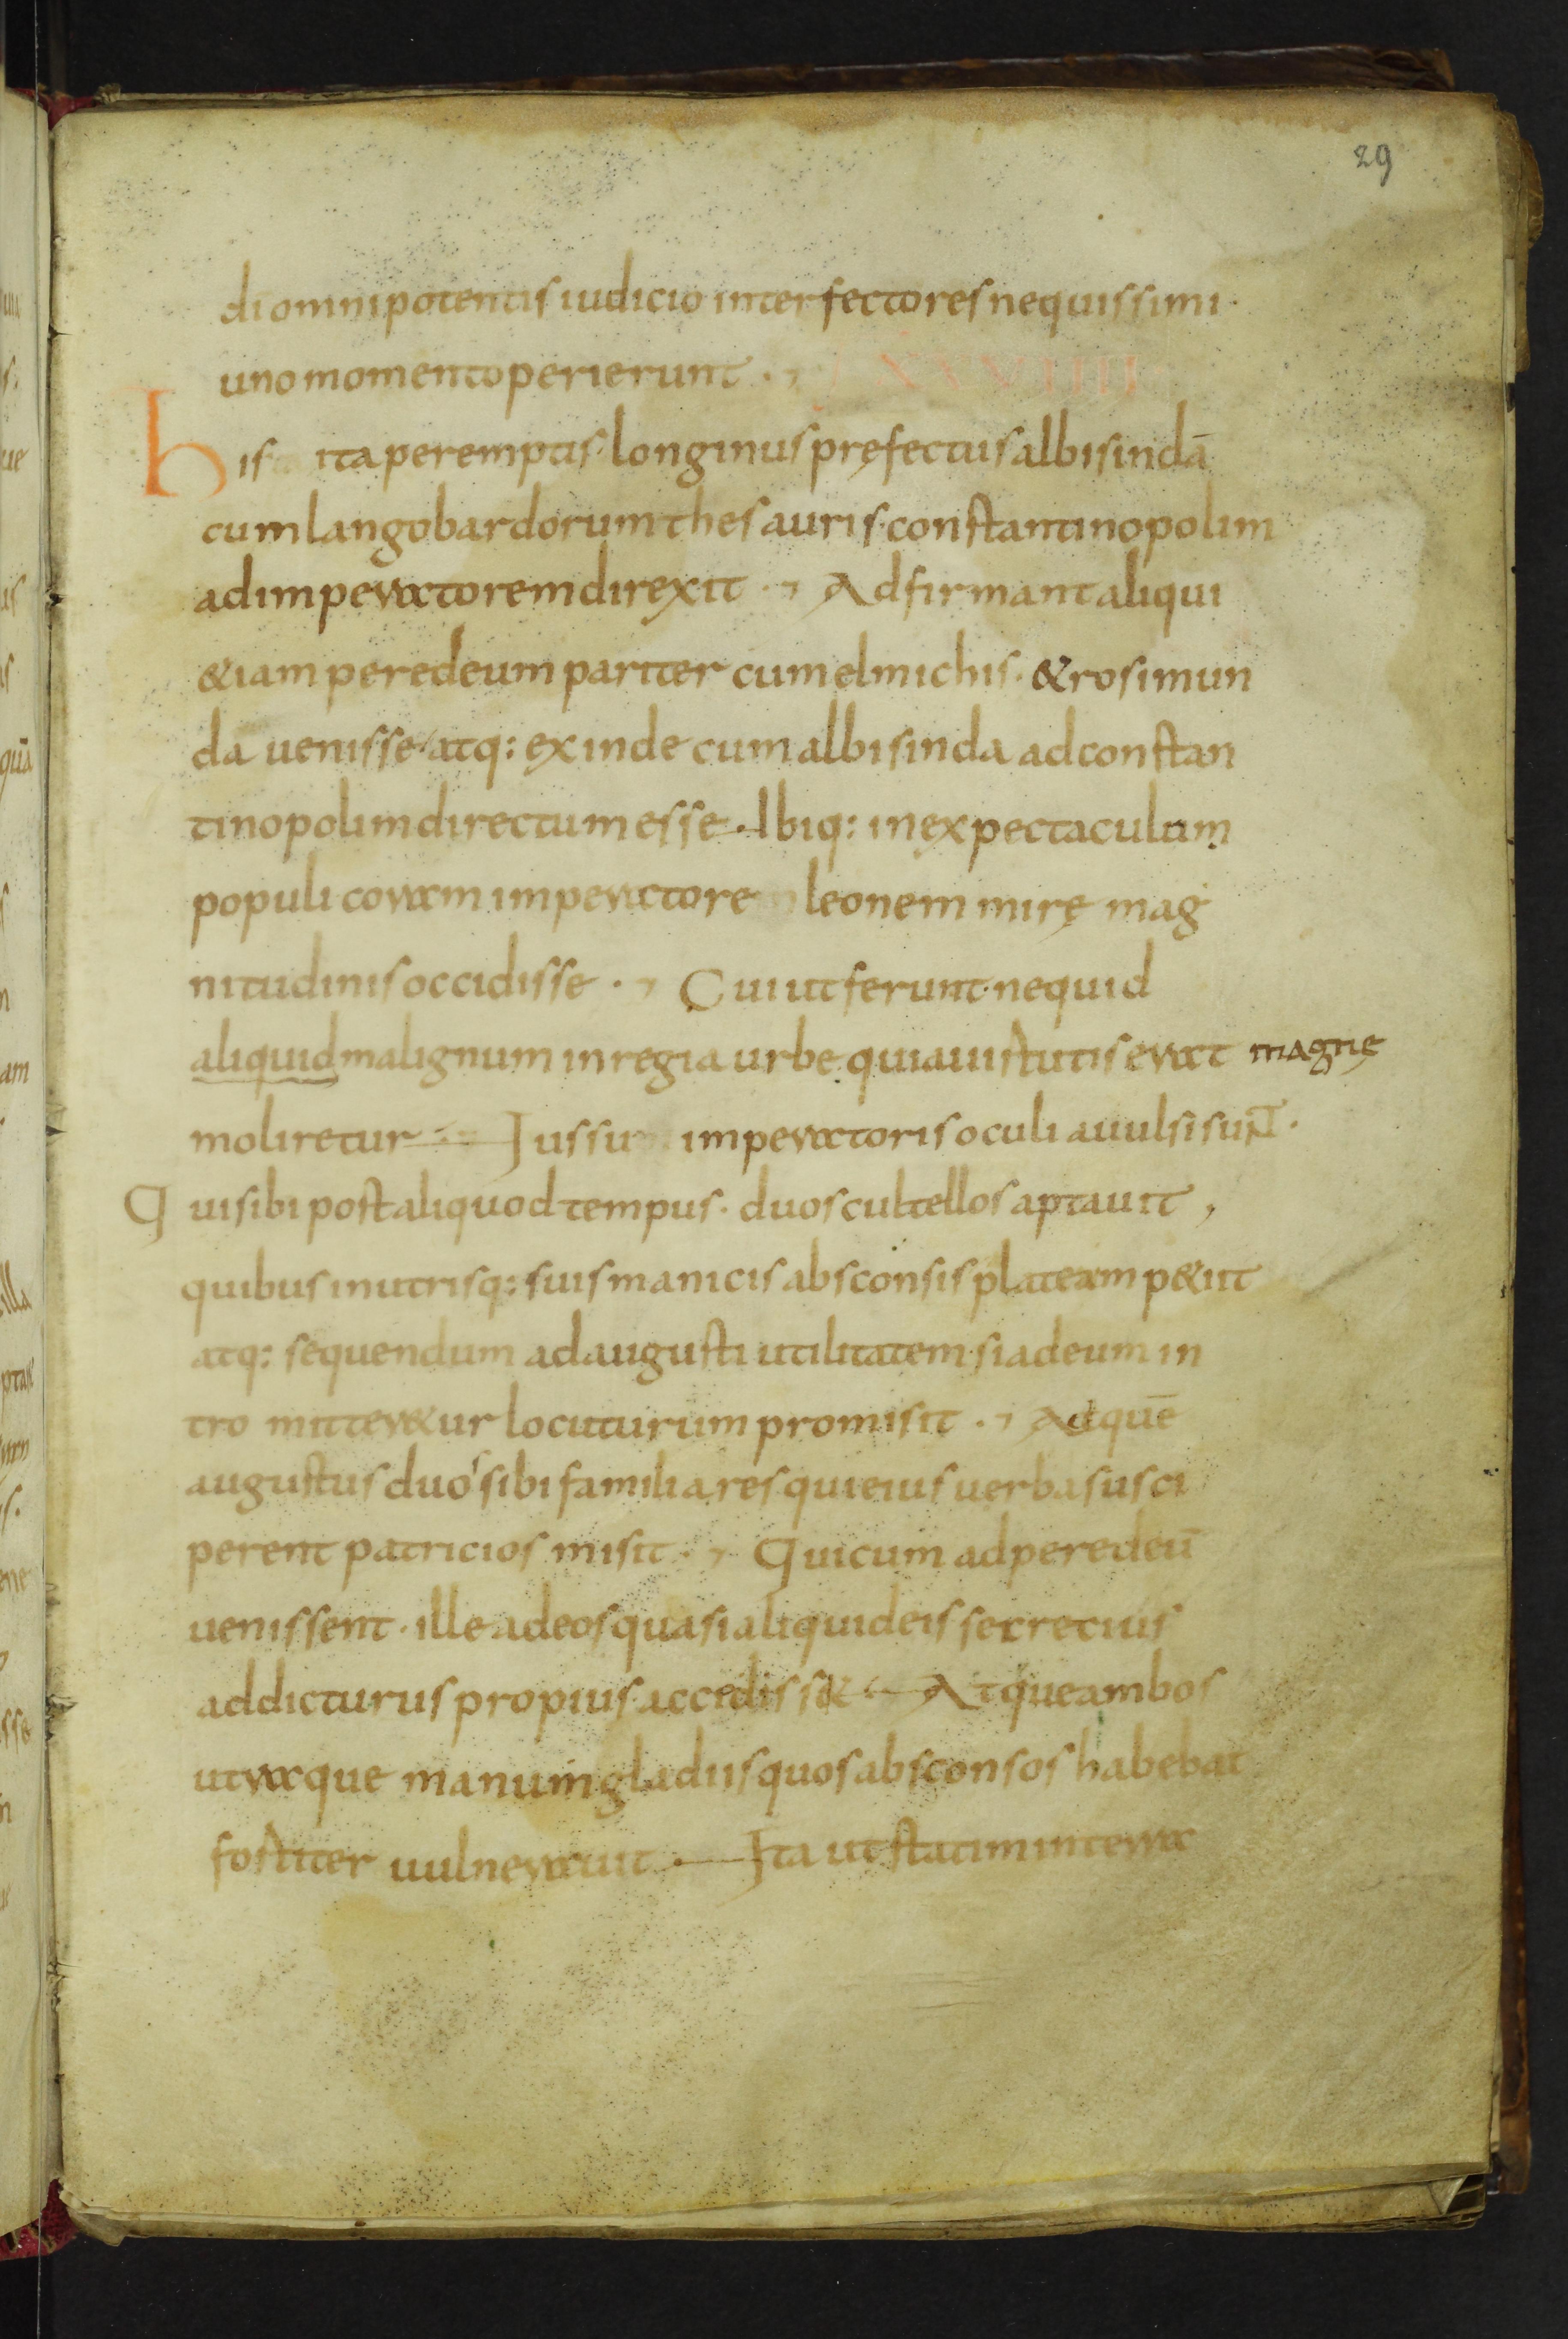 29
di omnipotentis iudicio interfectores nequissimi·
uno momento perierunt · XXXVIIII
his ita peremptis· longinus pręfectus albisindā
cum langobardorum thesauris· constantinopolim
ad imperatorem direxit · Adfirmant aliqui
&iam peredeum pariter cum elmichis· & rosimun
da uenisse atq: exinde cum albisinda ad constan
tinopolim directum esse· Ibiq: in expectaculum
populi coram imperatore leonem mirę mag
nitudinis occidisse · Cui ut ferunt· ne quid
aliquid malignum in regia urbe quia uirtutis erat magnę
moliretur Iussu imperatoris oculi auulsi sunt·
Qui sibi post aliquod tempus· duos cultellos aptauit,
quibus in utrisq: suis manicis absconsis plateam p&iit
atq: sequendum ad augusti utilitatem· si ad eum in
tro mitter&ur locuturum promisit · Ad quē
augustus duos sibi familiares qui eius uerba susci
perent patricios misit · Qui cum ad peredeū
uenissent· ille ad eos quasi aliquid eis secretius
addicturus propius accediss& Atque ambos
utraque manum gladiis quos absconsos habebat
fortiter uulnerauit · Ita ut statim in terra